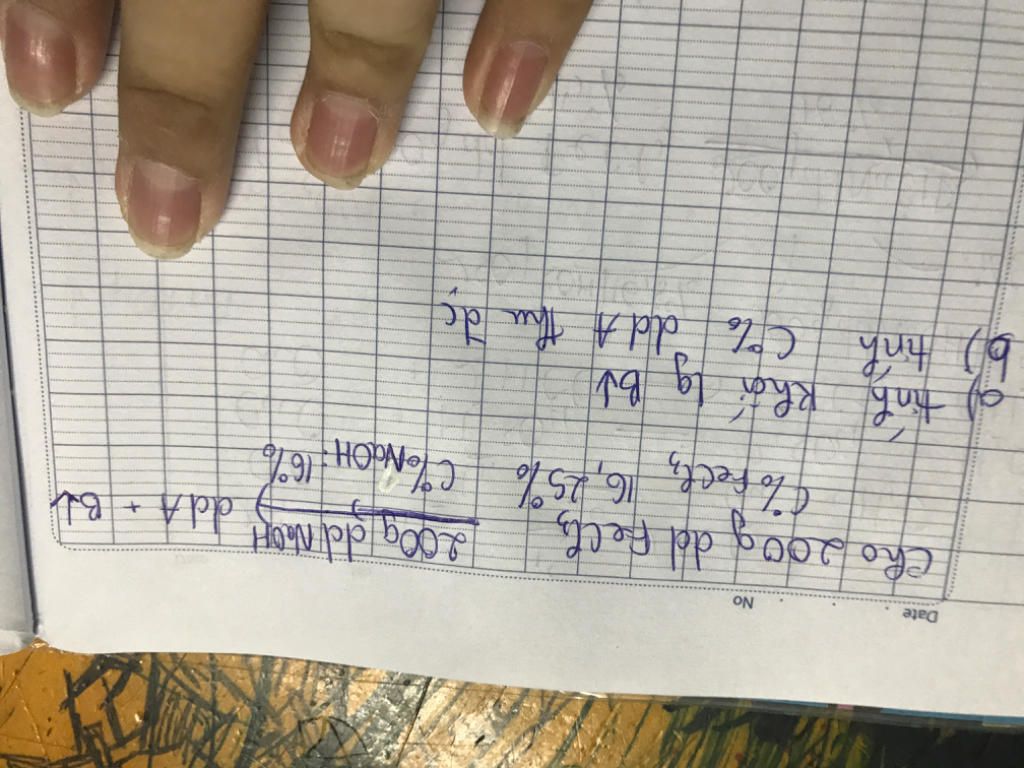 Date No
Cho 200g dd FeCl₃ 200g dd NaOH → ddA + B↓
C% FeCl₃ 16,25% C% NaOH: 16%
a) tính khối lg B↓
b) tính C% ddA thu đc